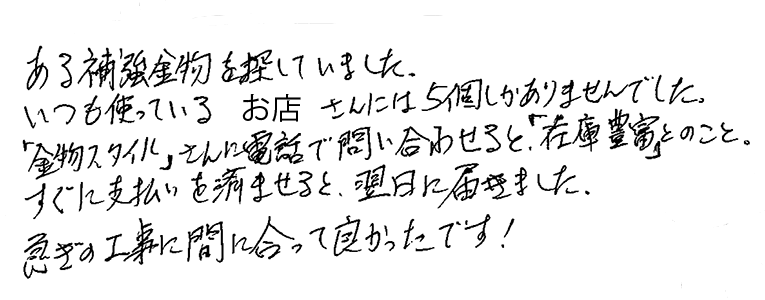 ある補強金物を探していました。
いつも使っている お店 さんには5個しかありませんでした。
「金物スタイル」さんに電話で問い合わせると、「在庫豊富」とのこと。
すぐに支払いを済ませると、翌日に届きました。
急ぎの工事に間に合って良かったです!